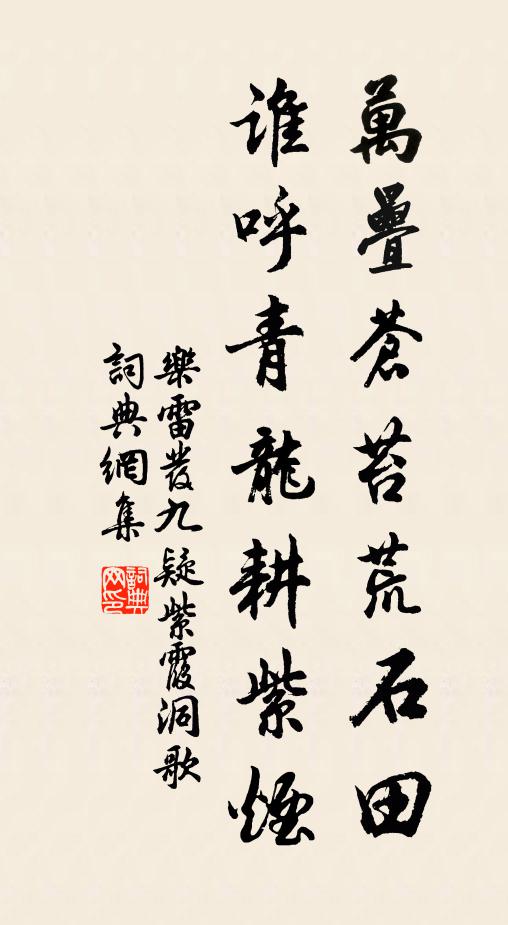 萬疊蒼苔荒石田
誰呼青龍耕紫煙
樂雷發九疑紫霞洞歌
詞典網集
詞典
网印